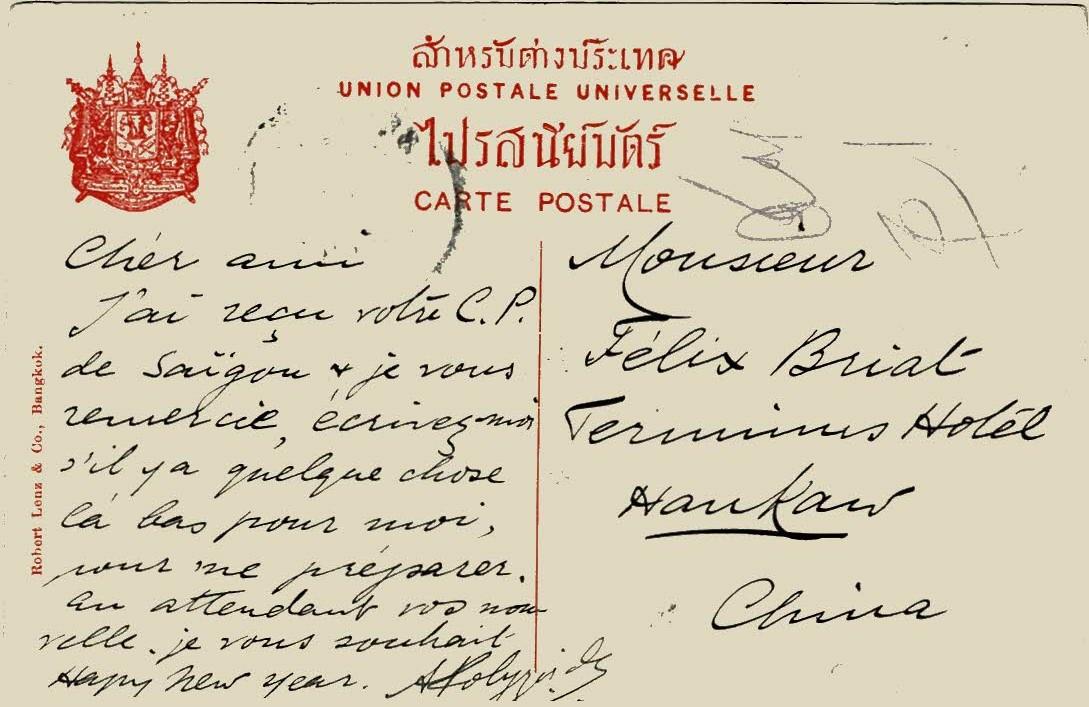 สำหรับต่างประเทศ
UNION POSTALE UNIVERSELLE
ไปรสนียบัตร์
CARTE POSTALE
Robert Lenz & Co., Bangkok.
Chér ami
J'ai reçu votre C.P.
de Saïgon & je vous
remercie, écrivez-moi
s'il y a quelque chose
là bas pour moi,
pour me préparer.
au attendant vos nou
velle. je vous souhait
Hapy New year.
Monsieur
Félix Briat
Terminus Hotel
Hankaw
China